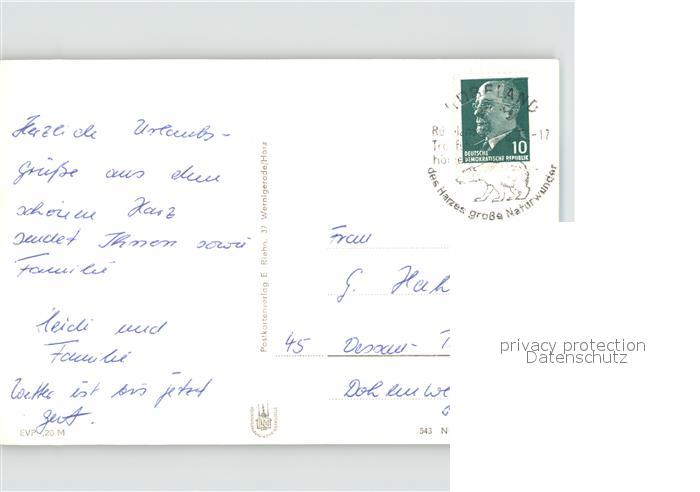 Herzliche Urlaubs-
grüße aus dem
schönen Harz
sendet Ihnen sowie
Familie
Heidi und
Familie
Wetter ist bis jetzt
gut.
EVP -,20 M
Postkartenverlag E. Riehn, 37 Wernigerode/Harz
-17
10
DEUTSCHE
DEMOKRATISCHE REPUBLIK
des Harzes große Naturwunder
Frau
G. Hah
45 Dessau-
543 N
privacy protection
Datenschutz